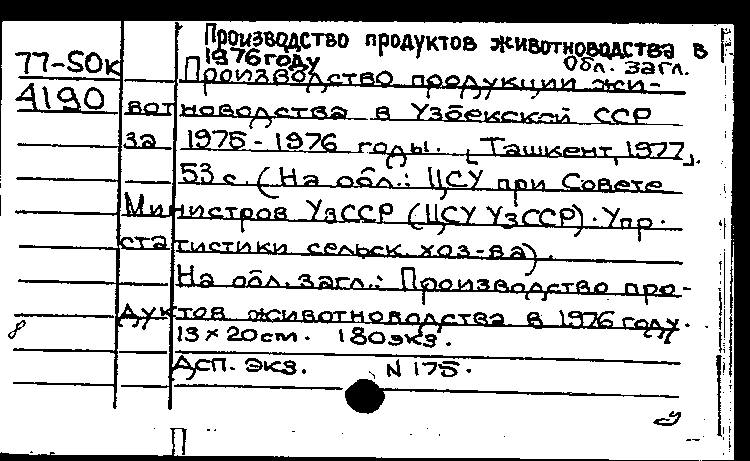 Производство продуктов животноводства в
1976 году Обл. загл.
77-50к Производство продукции жи-
4190 вотноводства в Узбекской ССР
за 1975-1976 годы. [Ташкент, 1977].
53 с. (На обл.: ЦСУ при Совете
Министров УзССР (ЦСУ УзССР). Упр.
статистики сельск. хоз-ва).
На обл. загл.: Производство про-
дуктов животноводства в 1976 году.
8 13 × 20 см. 180 экз.
Дсп. Экз. N 175.
П